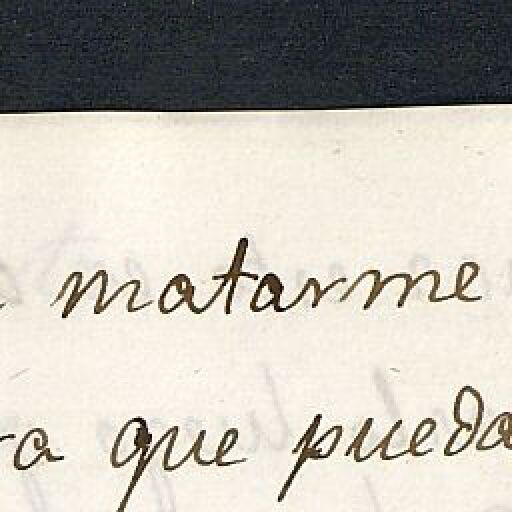 matarme
que pueda